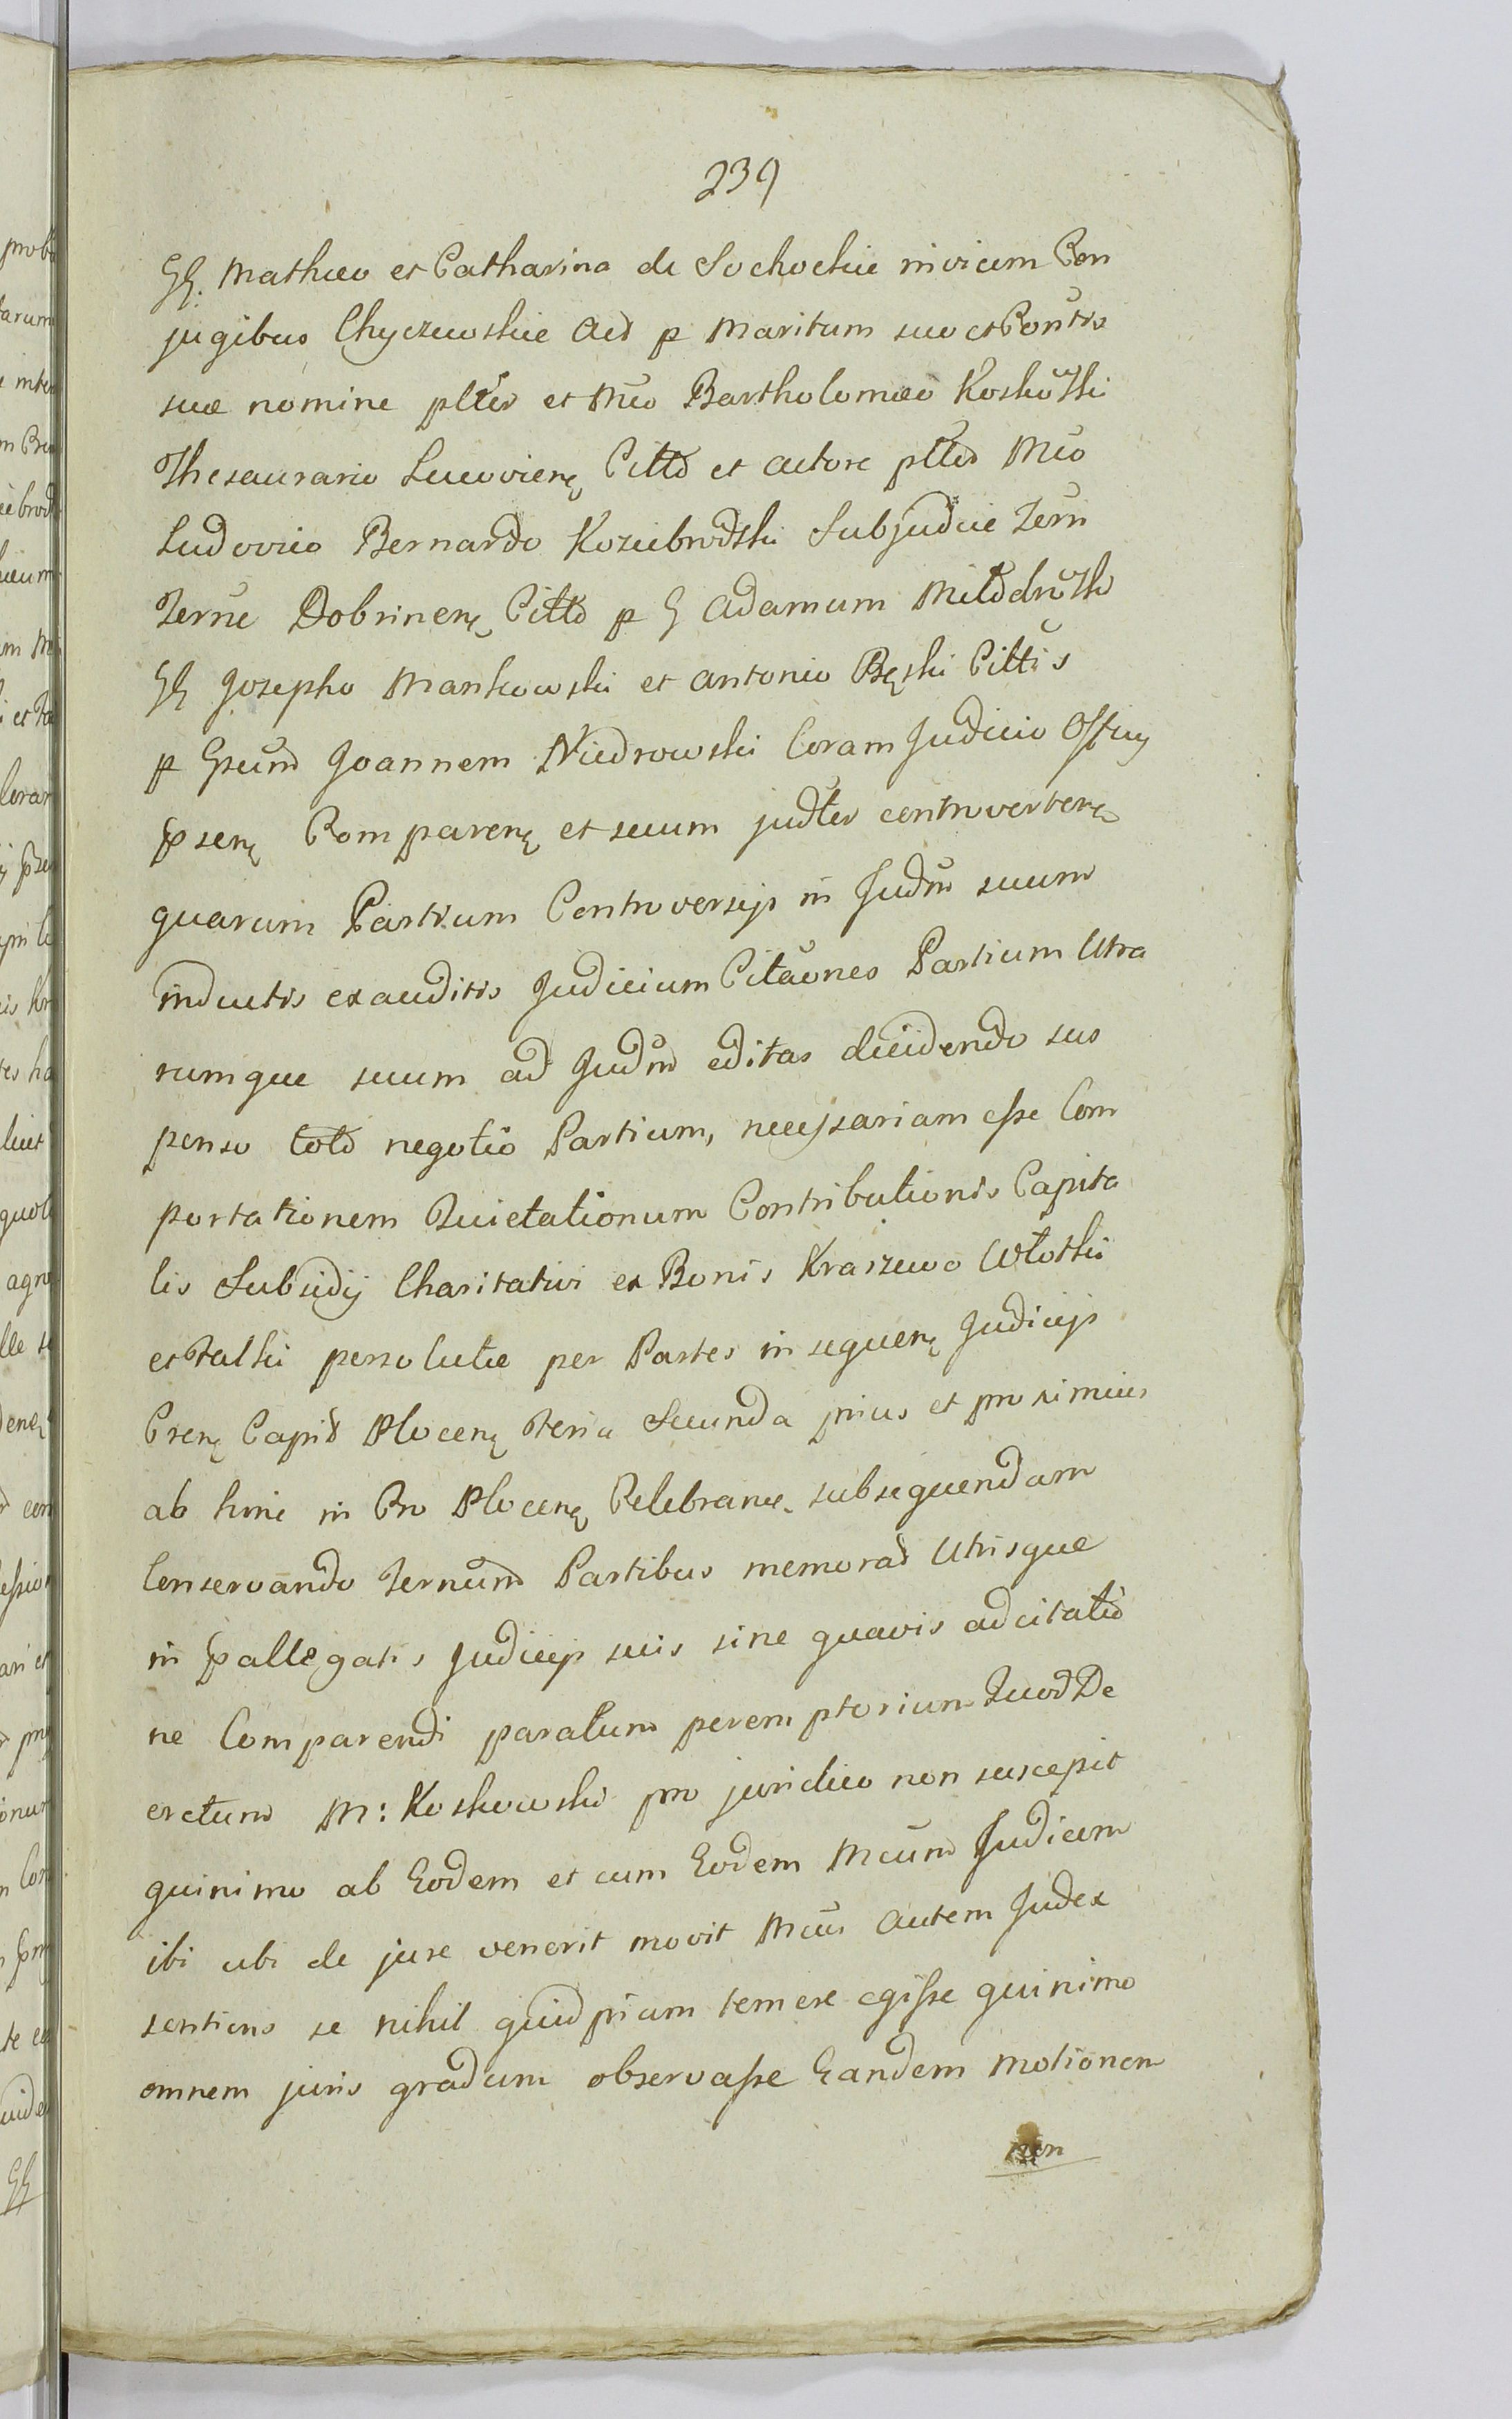 239
GG. Mathæo et Catharina de Sochockie invicem Con
jugibus Chyczewskie Act p Maritum suo et Contis
suæ nomine plter et Mco Bartholomæo Koskowski
Thesaurario Lucoviens Citto et actore plter Mco
Ludovico Bernardo Koziebrodzki Subjudice Terri
Terrne Dobrinens Citto p G Adamum
GG Josepho Mankowski et Antonio Bęski Cittis
p Gsum Joannem Niedrowski Coram Judicio Officij
psens Comparens et secum judter controvertens
quarum Partium Controversijs in Judm suum
inductis exauditis Judicium Citaones Partium Utra
rumque suum ad Judm editas decidendo sus
penso toto negotio Partium, necessariam esse Com
portationem Quietationum Contributionis Capita
lis Subsidij Charitativi ex Bonis Kraszewo Włostki
et Falki persolutæ per Partes in sequens Judicijs
Crens Capit Plocens Feria Secunda prius et proximius
ab hinc in Cro Plocens Celebran. subsequendam
Conservando Ternum Partibus memorat Utrisque
in pallegatis Judicijs suis sine quavis adcitatio
ne Comparendi paratum peremptorium Quod De
cretum M: Koskowski pro juridico non suscepit
quinimo ab Eodem et cum Eodem Mcum Judicem
ibi ubi de jure venerit movit Mcus autem Judex
sentiens se nihil quidpiam temere egisse quinimo
omnem juris gradum observasse Eandem motionem
non
prob
arum
inter
ebrod
et
quot
agro
ens
GG